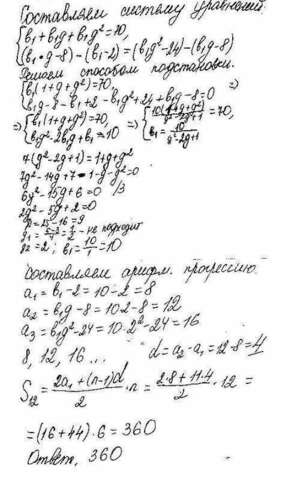 Составляем систему уравнений.
{b₁+b₁g+b₁g²=70,
(b₁·g-8)-(b₁-2)=(b₁g²-24)-(b₁g-8)
Решаем способом подстановки.
{b₁(1+g+g²)=70, =>
b₁g-8-b₁+2-b₁g²+24+b₁g-8=0
=>{b₁(1+g+g²)=70, =>{10(1+g+g²)/(g²-2g+1)=70,
b₁g²-2b₁g+b₁=10 b₁=10/(g²-2g+1)
7(g²-2g+1)=1+g+g²
7g²-14g+7-1-g-g²=0
6g²-15g+6=0 /3
2g²-5g+2=0
D=25-16=9
g₁=(5-3)/4=1/2 - не подходит
g₂=2; b₁=10/1=10
Составляем арифм. прогрессию.
a₁=b₁-2=10-2=8
a₂=b₁g-8=10·2-8=12
a₃=b₁g²-24=10·2²-24=16
8, 12, 16... d=a₂-a₁=12-8=4
S₁₂=(2a₁+(n-1)d)/2·n=(2·8+11·4)/2·12=
=(16+44)·6=360
Ответ, 360